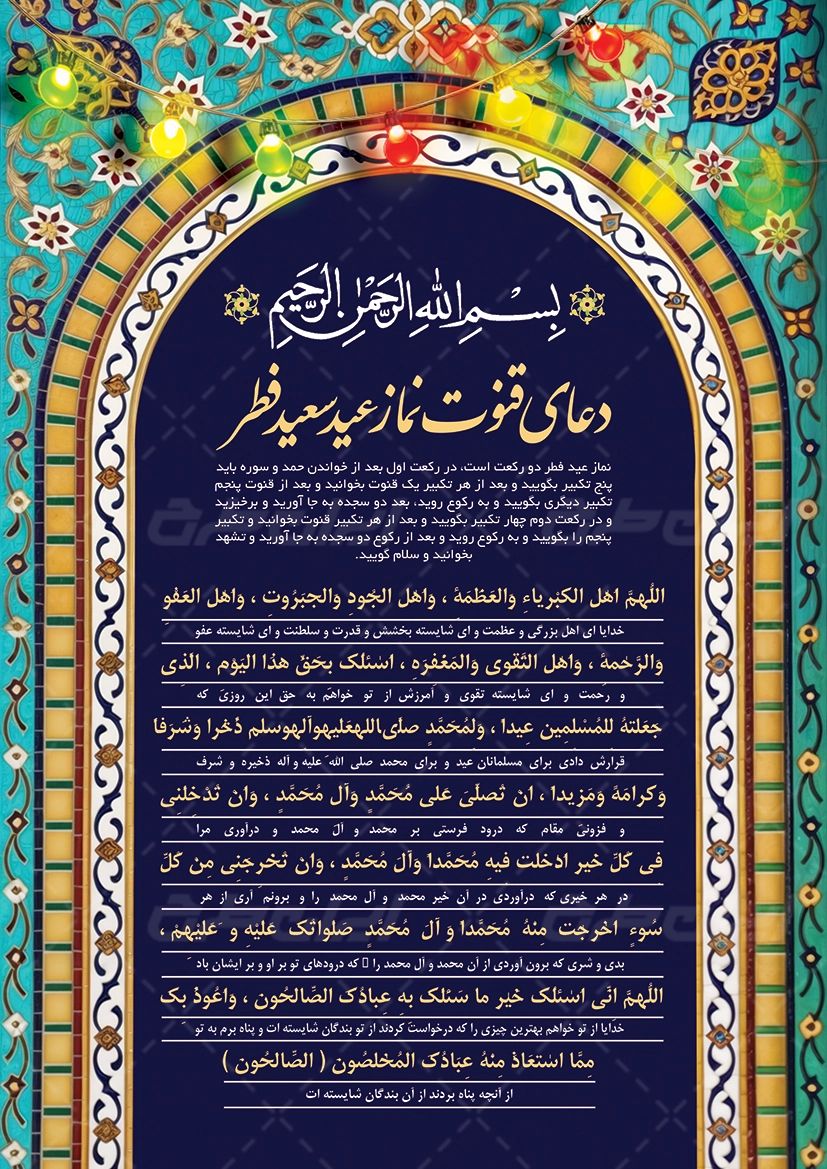 بِسْمِ اللهِ الرَّحْمٰنِ الرَّحِيمِ
دعای قنوت نماز عید سعید فطر
نماز عید فطر دو رکعت است، در رکعت اول بعد از خواندن حمد و سوره باید
پنج تکبیر بگویید و بعد از هر تکبیر یک قنوت بخوانید و بعد از قنوت پنجم
تکبیر دیگری بگویید و به رکوع روید، بعد دو سجده به جا آورید و برخیزید
و در رکعت دوم چهار تکبیر بگویید و بعد از هر تکبیر قنوت بخوانید و تکبیر
پنجم را بگویید و به رکوع روید و بعد از رکوع دو سجده به جا آورید و تشهد
بخوانید و سلام گویید.
اللُهمَّ اهْل الکبْریاءِ والعَظَمَهُٔ ، وَاهْل الجُودِ والجبَرُوت ، وَاهْل العَفْوِ
خدایا ای اهل بزرگی و عظمت و ای شایسته بخشش و قدرت و سلطنت و ای شایسته عفو
والرَّحْمهُٔ ، وَاهْل التَّقوی والمَغْفِرَهِ ، اسْئلک بحَقّ هذا الیَوْم ، الَّذِی
و رحمت و ای شایسته تقوی و آمرزش از تو خواهم به حق این روزی که
جَعَلتهُ للمُسْلِمِین عِیدا ، وَلِمُحَمَّدٍ صلّی‌الله‌علیه‌وآله‌وسلم ذخْرا وَشَرَفا
قرارش دادی برای مسلمانان عید و برای محمد صلی الله علیه و آله ذخیره و شرف
وَکرامَهُٔ وَمَزیدا ، انْ تصَلّیَ عَلی مُحَمَّدٍ وَآل مُحَمَّدٍ ، وَانْ تدْخلنِی
و فزونی مقام که درود فرستی بر محمد و آل محمد و درآوری مرا
فی کلِّ خیر ادخلت فِیهِ مُحَمَّدا وَآل مُحَمَّدٍ ، وَانْ تخرجَنِی مِن کلِّ
در هر خیری که درآوردی در آن خیر محمد و آل محمد را و برونم آری از هر
سُوءٍ اخرجت مِنْهُ مُحَمَّدا وَ آل مُحَمَّدٍ صَلواتک عَلیْهِ وَ عَلیْهِمْ ،
بدی و شری که برون آوردی از آن محمد و آل محمد را که درودهای تو بر او و بر ایشان باد
اللُهمَّ انّی اسْئلک خیر ما سَئلک بهِ عِبادُک الصّالحُون ، وَاعُوذ بک
خدایا از تو خواهم بهترین چیزی را که درخواست کردند از تو بندگان شایسته ات و پناه برم به تو
مِمَّا اسْتعَاذ مِنْهُ عِبَادُک المُخلصُون ( الصِّالحُون )
از آنچه پناه بردند از آن بندگان شایسته ات